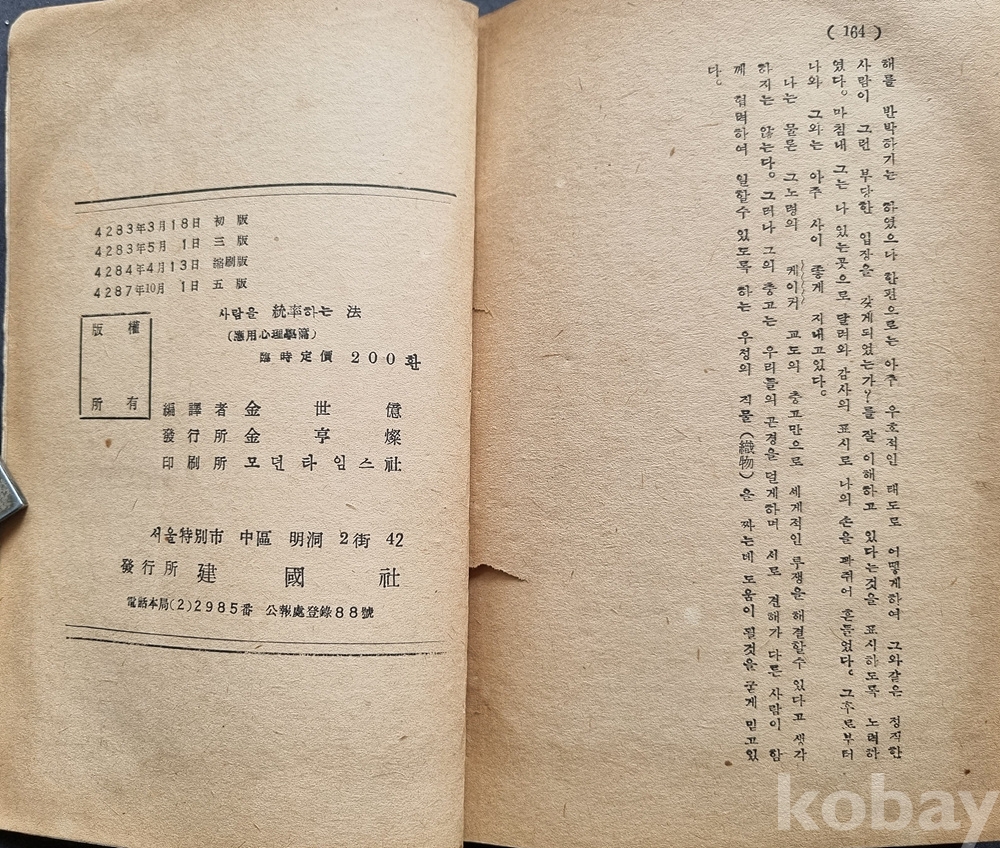 ( 164 )
해를 반박하기는 하였으나 한편으로는 아주 우호적인 태도로 어떻게하여 그와같은 정직한
사람이 그런 부당한 입장을 갖게되었는가?를 잘 이해하고 있다는것을 표시하도록 노력하
였다。마침내 그는 나 있는곳으로 달려와 감사의 표시로 나의 손을 꽉쥐어 흔들었다。그후로부터
나와 그와는 아주 사이 좋게 지내고있다。
나는 물론 그노령의 케이커 교도의 충고만으로 세게적인 투쟁을 해결할수 있다고 생각
하지는 않는다。그러나 그의 충고는 우리들의 곤경을 덜게하며 서로 견해가 다른 사람이 함
께 협력하여 일할수 있도록 하는 우정의 직물(織物)을 짜는데 도움이 될것을 굳게 믿고있
다。
4283年3月18日 初 版
4283年5月 1日 三 版
4284年4月13日 縮刷版
4287年10月 1日 五 版
사람을 統率하는 法
(應用心理學篇)
臨時定價 200환
版 權
所 有
編譯者 金 世 億
發行所 金 亨 燦
印刷所 모던타임스社
서울特別市 中區 明洞 2街 42
發行所 建 國 社
電話本局(2)2985番 公報處登錄88號
kobay